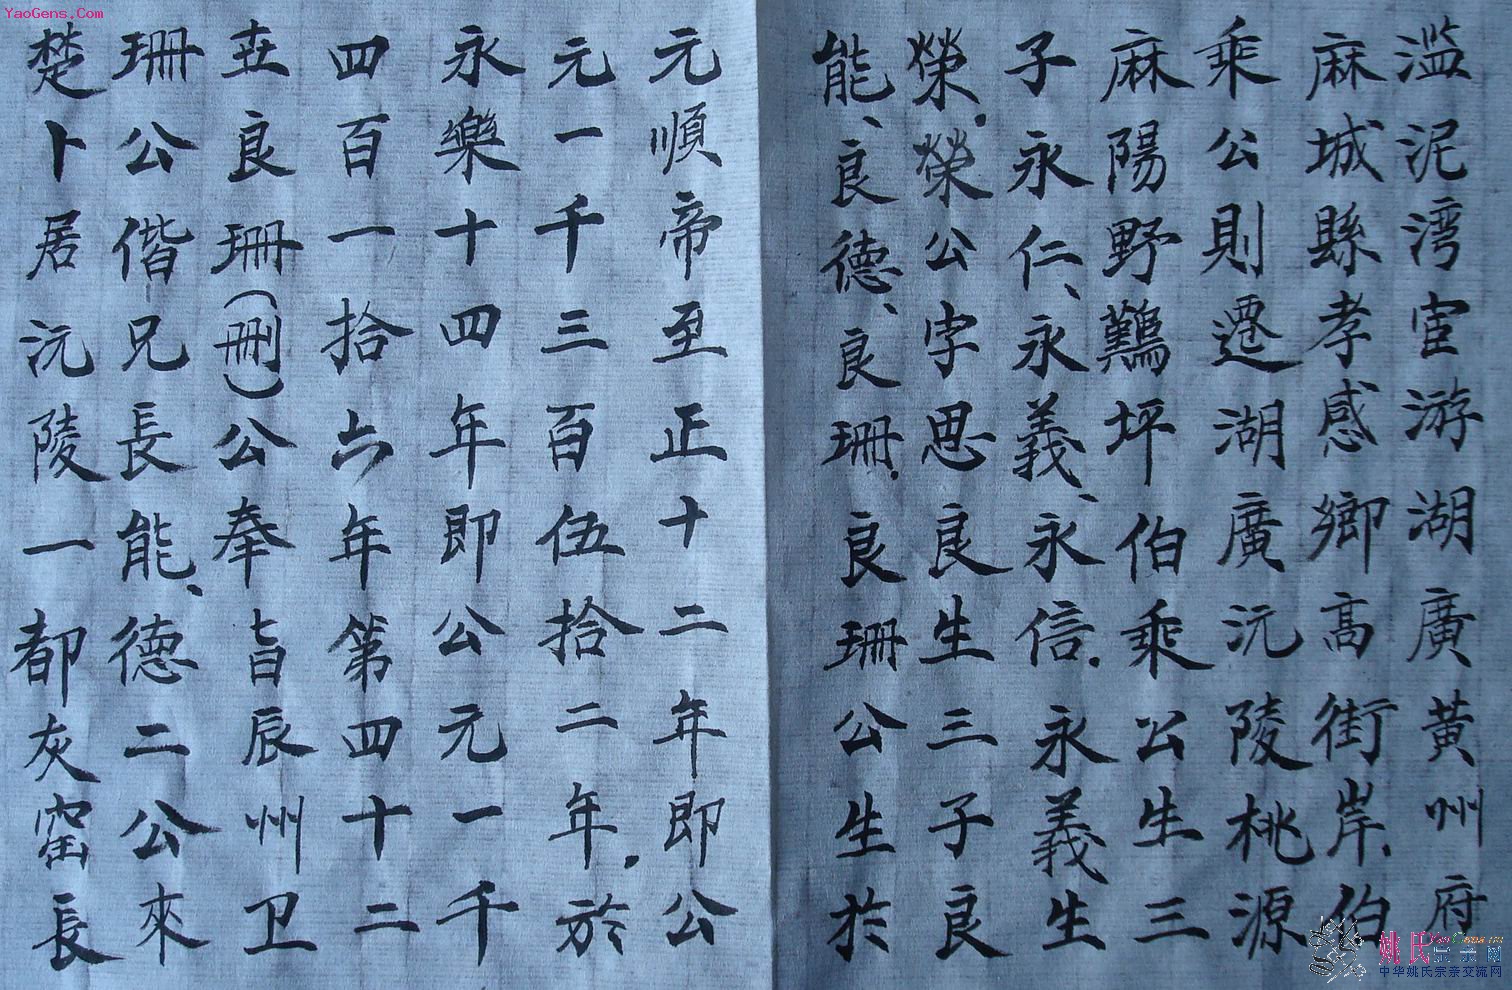 YaoGens.Com
滥泥湾宦游湖廣黃州府
麻城縣孝感鄉高街岸、伯
乘公則遷湖廣沅陵桃源
麻陽野鷄坪伯乘公生三
子永仁、永義、永信.永義生
榮.榮公字思良生三子良
能、良德、良珊.良珊公生於
元順帝至正十二年即公
元一千三百伍拾二年.於
永樂十四年即公元一千
四百一拾六年第四十二
世良珊(删)公奉旨辰州卫
珊公偕兄長能、德二公來
楚卜居沅陵一都灰窑長
姚氏宗亲网
中华姚氏宗亲交流网